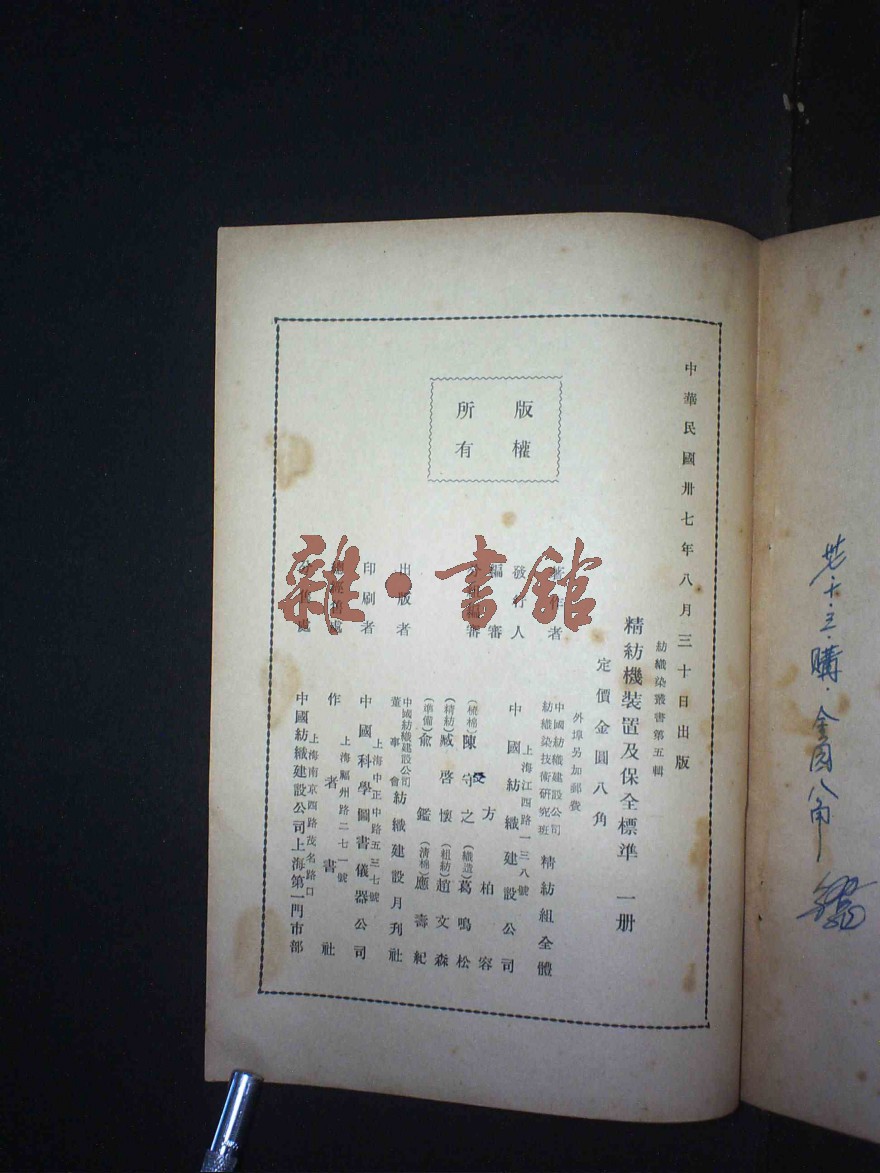 中華民國卅七年八月三十日出版
紡織染叢書第五輯
精紡機裝置及保全標準 一册
定價金圓八角
外埠另加郵費
著作者
中國紡織建設公司
紡織染技術研究班
精紡組全體
發行人
上海江西路一三八號
中國紡織建設公司
編審
方柏容
分科編審
(梳棉)陳守之
(織造)葛鳴松
(精紡)臧啓懷
(粗紡)趙文森
(準備)兪鑑
(清棉)應壽紀
出版者
中國紡織建設公司
董事會
紡織建設月刊社
印刷者
上海中正中路五三七號
中國科學圖書儀器公司
總經售處
上海福州路二七一號
作者書社
上海南京西路茂名路口
中國紡織建設公司上海第一門市部
版權
所有
雜·書館
購·金圓八角